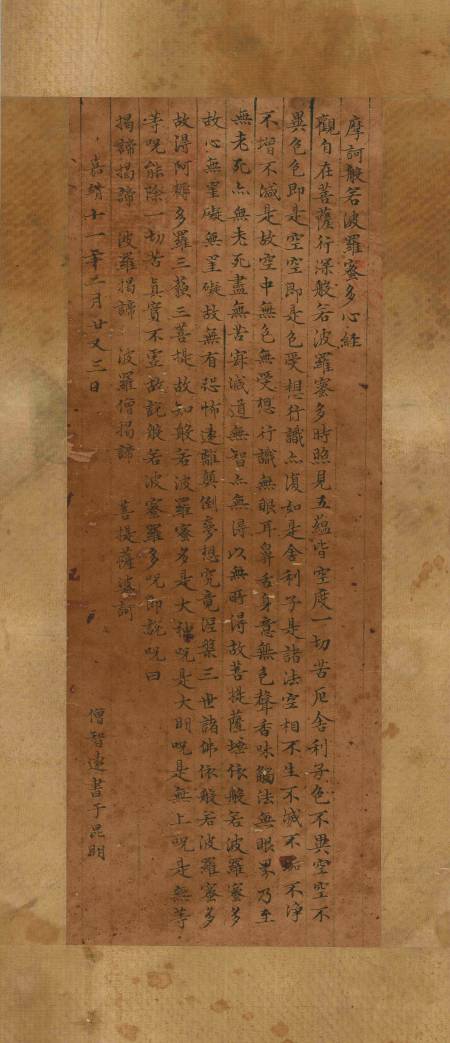 摩訶般若波羅蜜多心経
觀自在菩薩行深般若波羅蜜多時照見五蘊皆空度一切苦厄舍利子色不異空空不
異色色即是空空即是色受想行識亦復如是舍利子是諸法空相不生不滅不垢不净
不增不減是故空中無色無受想行識無眼耳鼻舌身意無色聲香味觸法無眼界乃至
無老死亦無老死盡無苦寂滅道無智亦無得以無時得故菩提薩埵依般若波羅蜜多
故心無罣礙無罣礙故無有恐怖遠離顛倒夢想究竟涅槃三世諸佛依般若波羅蜜多
故得阿耨多羅三藐三菩提故知般若波羅蜜多是大神呪是大明呪是無上呪是無等
等呪能除一切苦真實不虛故說般若波蜜羅多呪即說呪曰
揭諦揭諦 波羅揭諦 波羅僧揭諦 菩提薩婆訶
嘉靖十一年二月廿又三日
僧智遠書于昆明